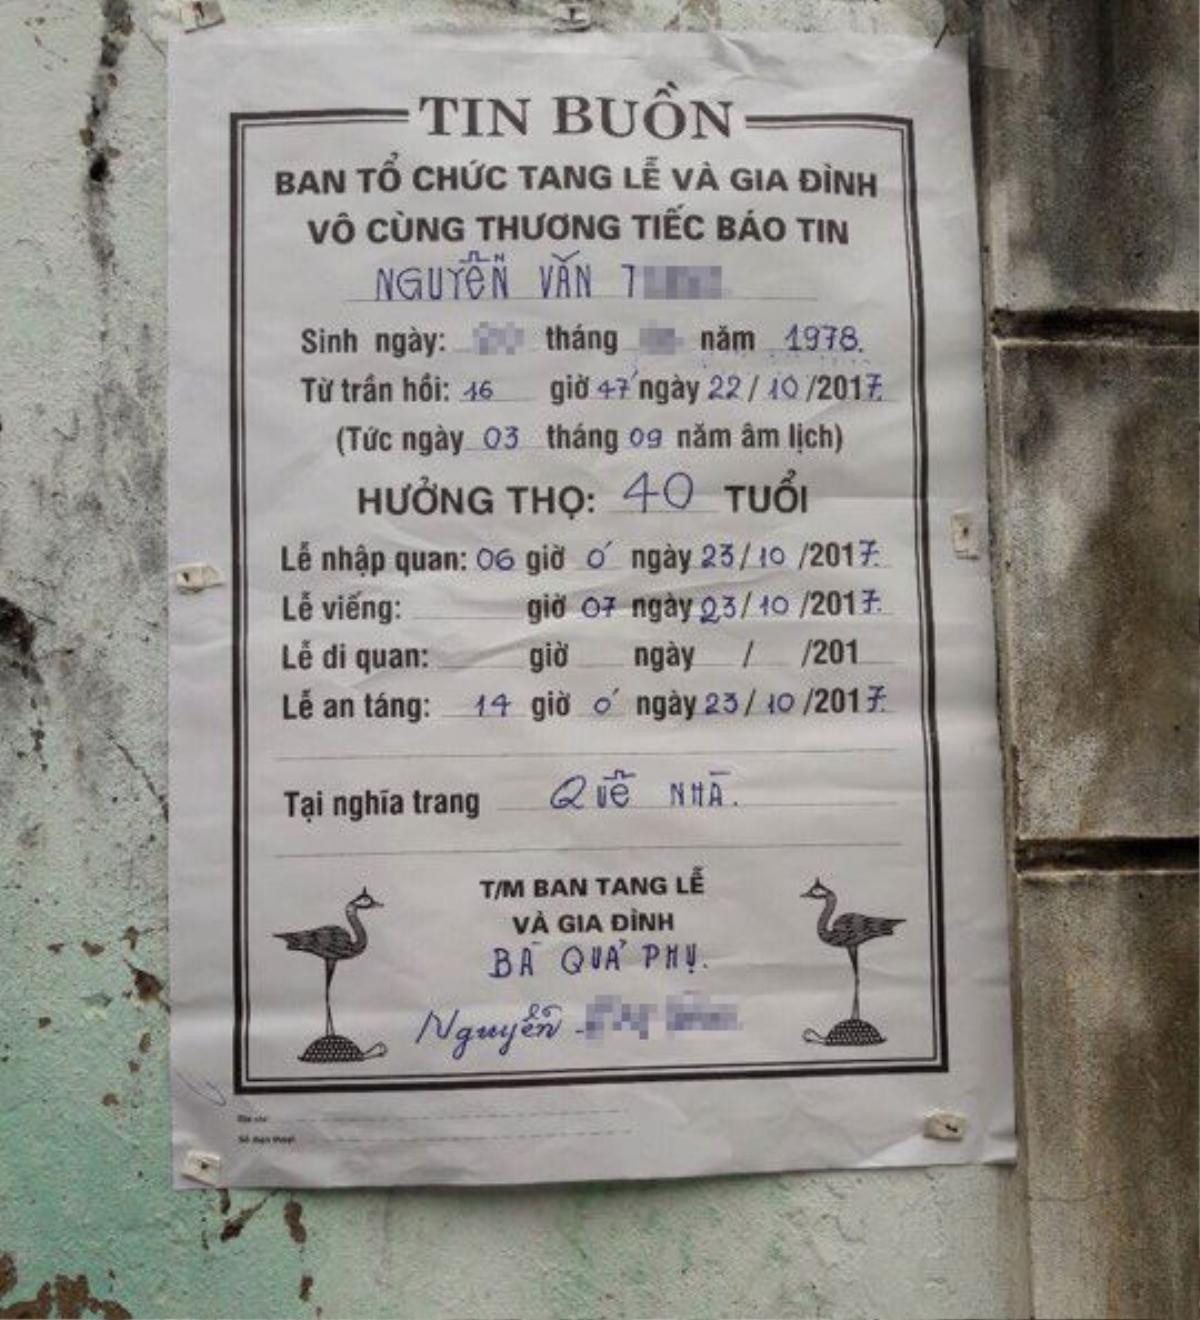 TIN BUỒN
BAN TỔ CHỨC TANG LỄ VÀ GIA ĐÌNH
VÔ CÙNG THƯƠNG TIẾC BÁO TIN
NGUYỄN VĂN T
Sinh ngày: tháng năm 1978.
Từ trần hồi: 16 giờ 47' ngày 22/10/2017.
(Tức ngày 03 tháng 09 năm âm lịch)
HƯỞNG THỌ: 40 TUỔI
Lễ nhập quan: 06 giờ 0' ngày 23/10/2017.
Lễ viếng: giờ 07 ngày 23/10/2017.
Lễ di quan: giờ ngày / /201
Lễ an táng: 14 giờ 0' ngày 23/10/2017.
Tại nghĩa trang QUÊ NHÀ.
T/M BAN TANG LỄ
VÀ GIA ĐÌNH
BÀ QUẢ PHỤ.
Nguyễn
Địa chỉ:
Số điện thoại: